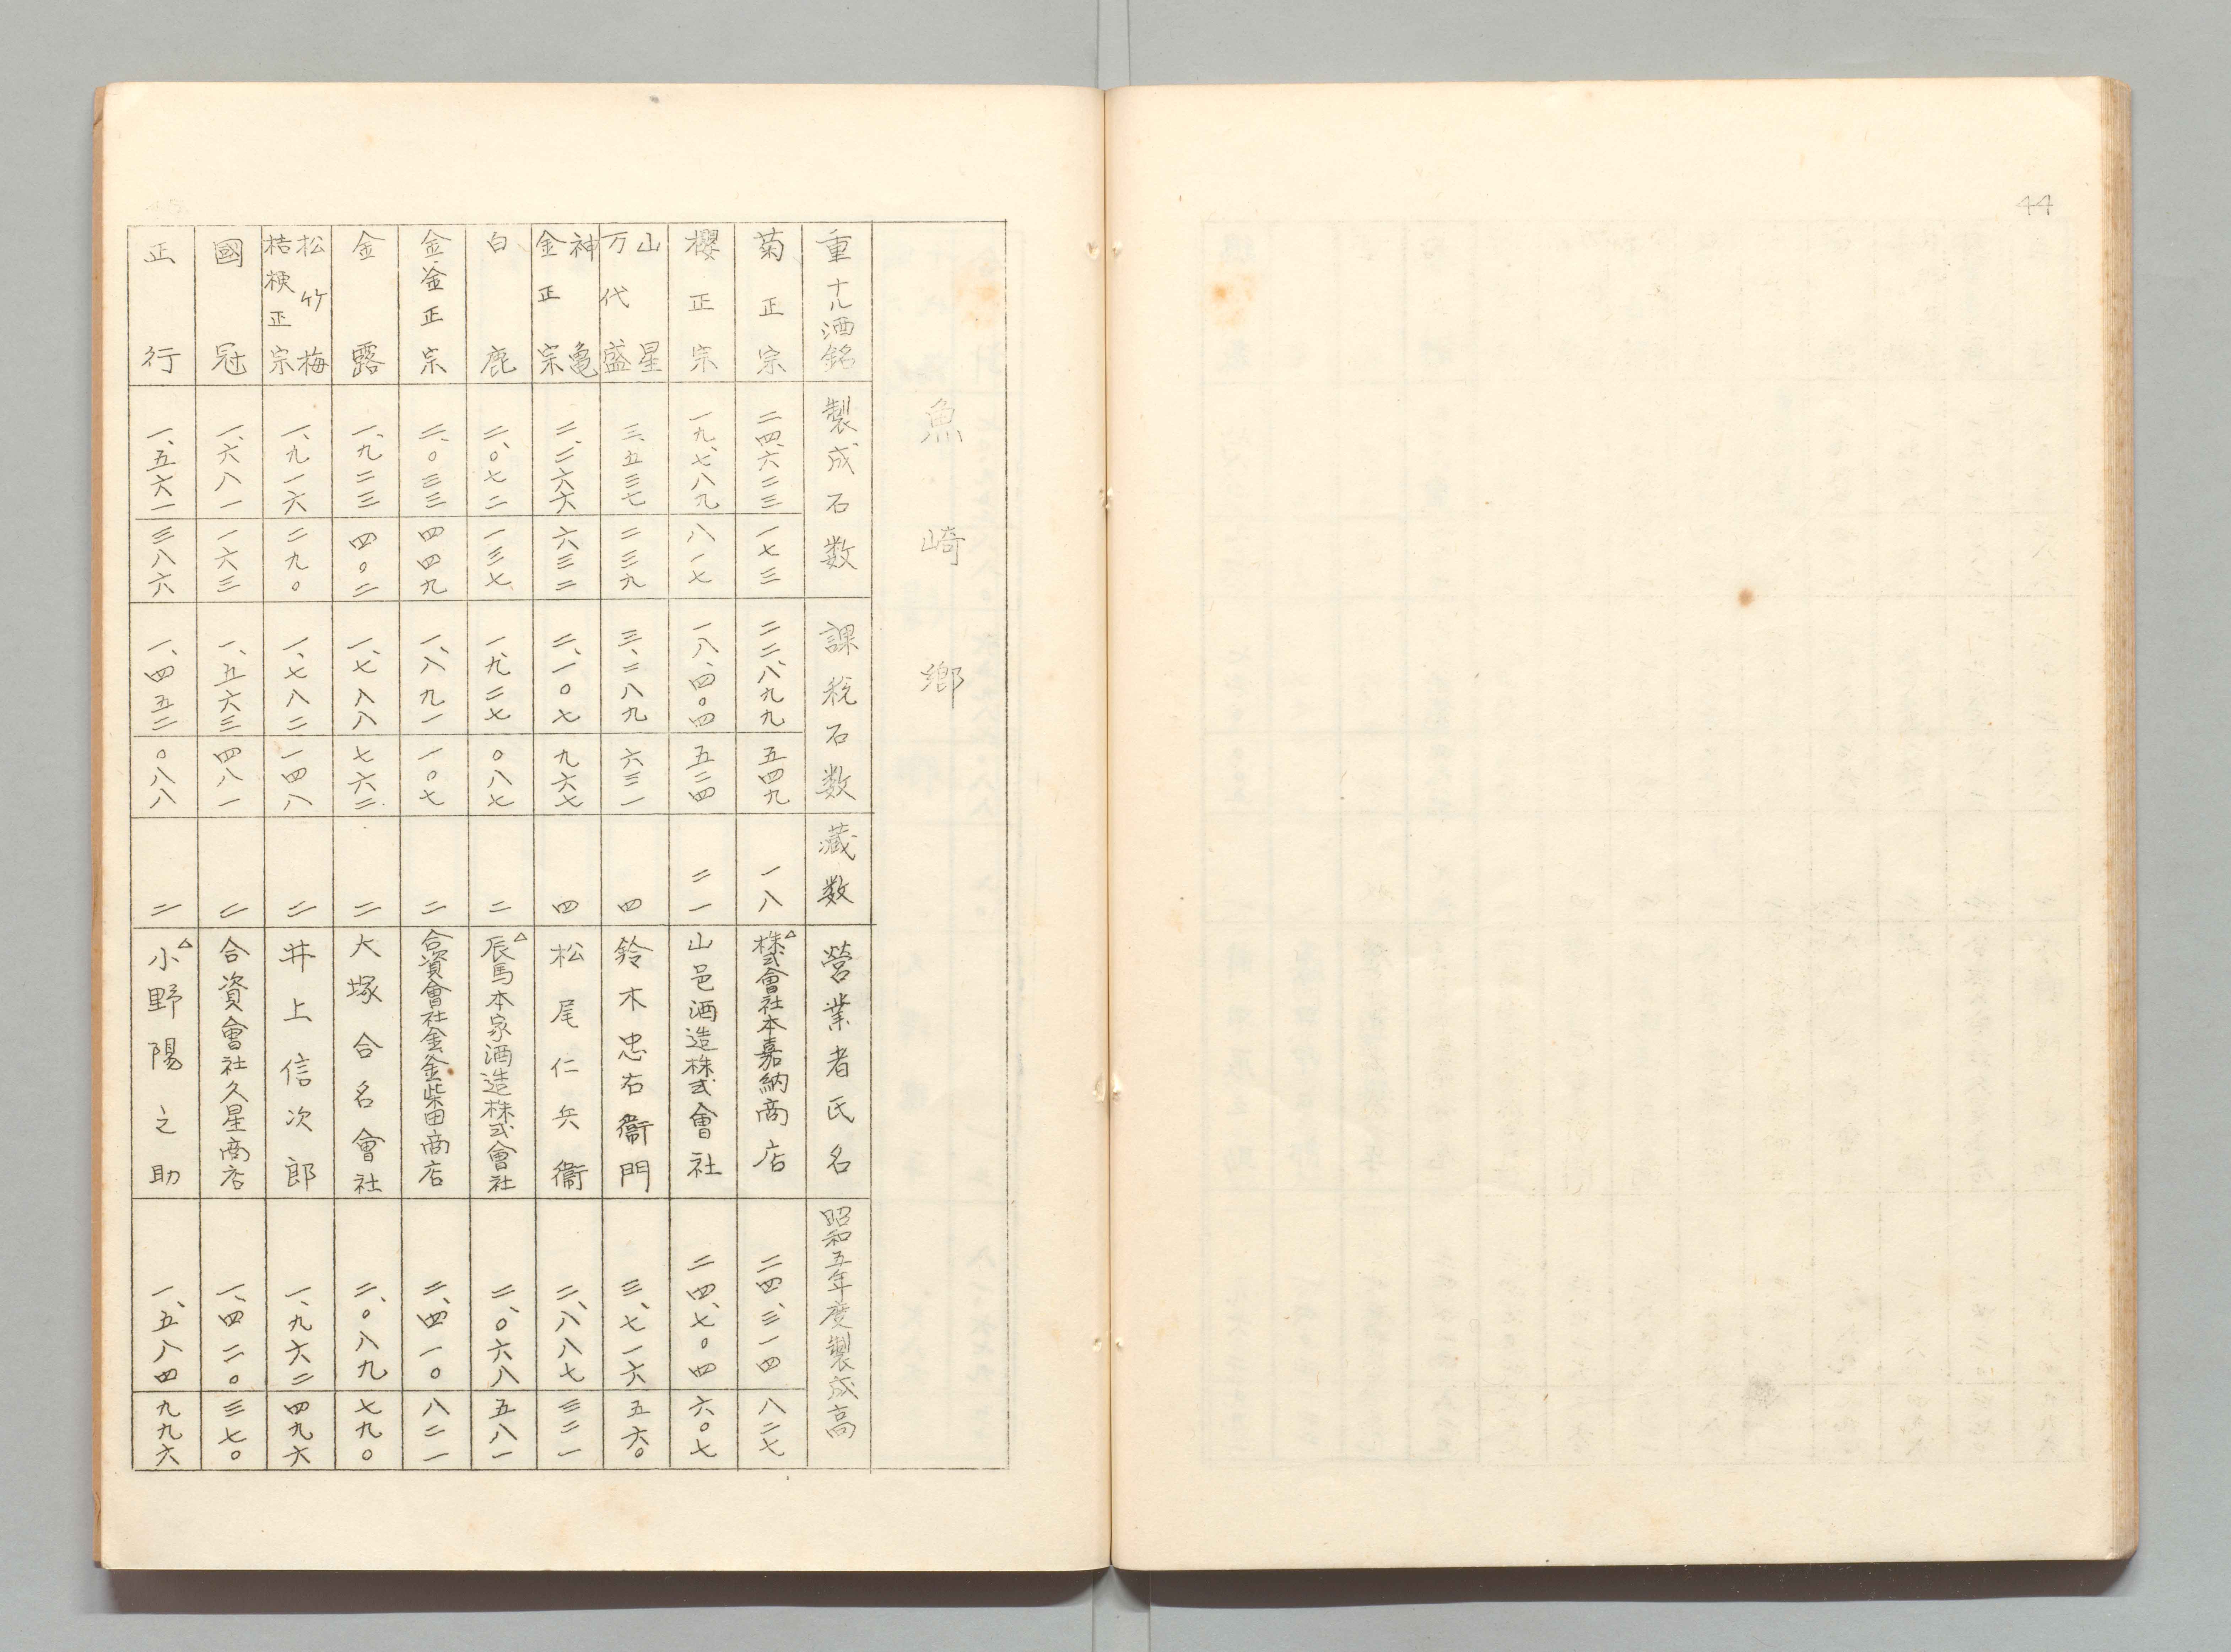 44
魚崎鄉
重ナル酒銘 製成石数 課税石数 藏数 營業者氏名 昭和五年度製成高
菊正宗 二四、六二三 一七三 二二、八九九 五四九 一八 △株式會社本嘉納商店 二四、三一四 八二七
櫻正宗 一九、七八九 八一七 一八、四〇四 五二四 二一 山邑酒造株式會社 二四、七〇四 六〇七
山星 万代盛 三、五三七 二三九 三、二八九 六三一 四 鈴木忠右衞門 三、七一六 五六〇
神亀 金正宗 二、二六六 六三二 二、一〇七 九六七 四 松尾仁兵衞 二、八八七 三二一
白鹿 二、〇七二 一三七 一、九二七 〇八七 二 △辰馬本家酒造株式會社 二、〇六八 五八一
金釜正宗 二、〇三三 四四九 一、八九一 一〇七 二 合資會社金釜柴田商店 二、四一〇 八二一
金露 一、九二三 四〇二 一、七八八 七六二 二 大塚合名會社 二、〇八九 七九〇
松竹梅 桔梗正宗 一、九一六 二九〇 一、七八二 一四八 二 井上信次郎 一、九六二 四九六
國冠 一、六八一 一六三 一、五六三 四八一 二 合資會社久星商店 一、四二〇 三七〇
正行 一、五六一 三八六 一、四五二 〇八八 二 △小野陽之助 一、五八四 九九六